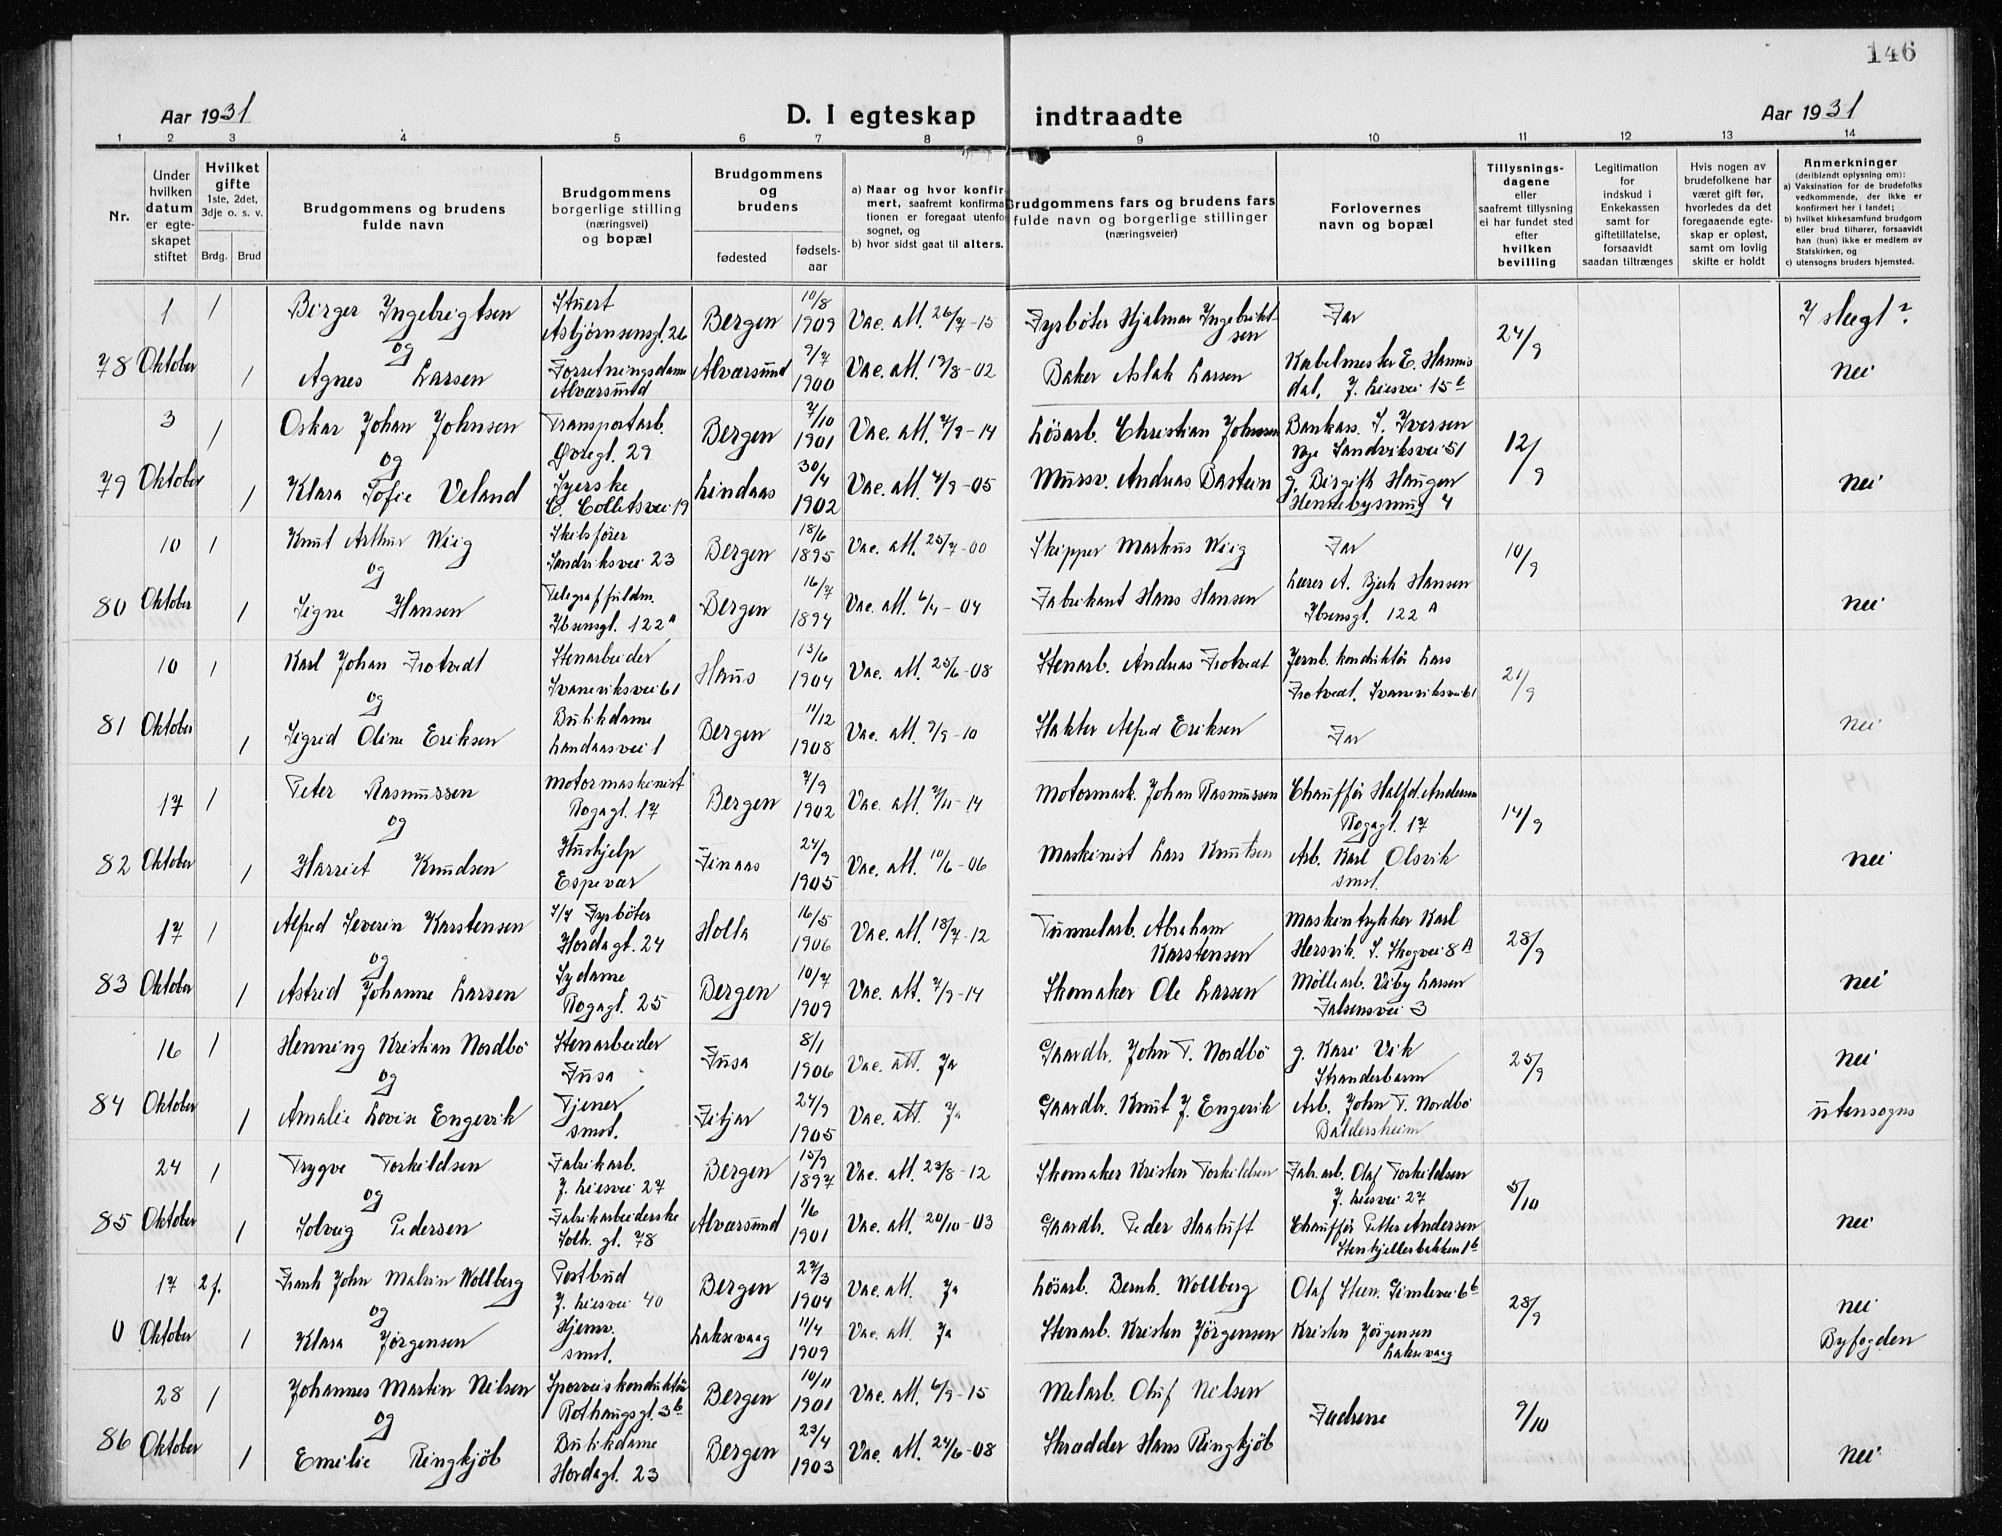 146
Aar 1931
D. I egteskap indtraadte
Aar 1931
1 2 3 4 5 6 7 8 9 10 11 12 13 14
Nr.
Under hvilken datum er egteskapet stiftet
Hvilket gifte 1ste, 2det, 3dje o. s. v.
Brdg. Brud
Brudgommens og brudens fulde navn
Brudgommens borgerlige stilling (næringsvei) og bopæl
Brudgommens og brudens
fødested fødselsaar
a) Naar og hvor konfirmert, saafremt konfirmationen er foregaat utenfor sognet, og
b) hvor sidst gaat til alters.
Brudgommens fars og brudens fars fulde navn og borgerlige stillinger (næringsveier)
Forlovernes navn og bopæl
Tillysningsdagene eller saafremt tillysning ei har fundet sted efter hvilken bevilling
Legitimation for indskud i Enkekassen samt for giftetillatelse, forsaavidt saadan tiltrænges
Hvis nogen av brudefolkene har været gift før, hvorledes da det foregaaende egteskap er opløst, samt om lovlig skifte er holdt
Anmerkninger (deriblandt oplysning om):
a) Vaksination for de brudefolks vedkommende, der ikke er konfirmert her i landet;
b) hvilket kirkesamfund brudgom eller brud tilhører, forsaavidt han (hun) ikke er medlem av Statskirken, og
c) utensogns bruders hjemsted.
1 1 Birger Ingebrigtsen Stuert Asbjørnsensgt. 26 Bergen 10/8 1909 Vac. att. 26/7-15 Fyrbøter Hjalmar Ingebriktsen Far 24/9 I slegt?
og
78 Oktober 1 Agnes Larsen Forretningsdame Alversund Alversund 9/7 1900 Vac. att. 13/8-02 Baker Aslak Larsen Kabelmester E. Hannisdal, J. Liesvei 15b nei
3 1 Oskar Johan Johnsen Transportarb. Øvregt. 29 Bergen 7/10 1901 Vac. att. 7/9-14 Løsarb. Christian Johnsen Bankass. S. Iversen Nye Sandviksvei 51 12/9
og
79 Oktober 1 Klara Sofie Veland Syerske C. Colletsvei 19 Lindaas 30/4 1902 Vac. att. 4/9-05 Mursv. Andreas Bastein g. Birgit Haugen 4 nei
10 1 Knut Arthur Wiig Skibsfører Sandviksvei 23 Bergen 18/6 1895 Vac. att. 25/7-00 Skipper Markus Wiig Far 10/9
og
80 Oktober 1 Signe Hansen Telegraffuldm. Ibsensgt. 122a Bergen 16/7 1894 Vac. att. 6/4-04 Fabrikant Hans Hansen Lærer A. Bjerk Hansen Ibsensgt. 122A nei
10 1 Karl Johan Frotvedt Stenarbeider Svaneviksvei 61 Haus 13/6 1904 Vac. att. 25/6-08 Stenarb. Andreas Frotvedt Jernb. konduktör Lars Frotvedt, Svaneviksvei 61 21/9
og
81 Oktober 1 Sigrid Oline Eriksen Butikdame Landaasvei 1 Bergen 11/12 1908 Vac. att. 7/9-10 Slakter Alfred Eriksen Far nei
17 1 Peter Rasmussen Motormaskinist Rogagt. 17 Bergen 7/9 1902 Vac. att. 7/11-14 Motormask. Johan Rasmussen Chauffør Halfd. Andersen Rogagt. 17 14/9
og
82 Oktober 1 Harriet Knudsen Hushjelp Espevær Finaas 27/9 1905 Vac. att. 10/6-06 Maskinist Lars Knutsen Arb. Karl Olsvik smst. nei
17 1 Alfred Severin Karstensen Fyrbøter Hordagt. 24 Holla 16/5 1906 Vac. att. 18/7-12 Tunnelarb. Abraham Karstensen Maskintrykker Karl Hersvik. S. Skogvei 8A 28/9
og
83 Oktober 1 Astrid Johanne Larsen Sydame Rogagt. 25 Bergen 10/7 1909 Vac. att. 7/9-14 Skomaker Ole Larsen Møllearb. Viby Larsen Falsensvei 3 nei
16 1 Henning Kristian Nordbö Stenarbeider Fusa Fusa 8/1 1906 Vac. att. Ja Gaardbr. John T. Nordbö g. Kari Vik Strandebarm 25/9 nei
og
84 Oktober 1 Amalie Lovise Engevik Tjener smst. Fitjar 27/9 1905 Vac. att. Ja Gaardbr. Knut J. Engevik Arb. John T. Nordbö Baldersheim utensogns
24 1 Trygve Torkildsen Fabrikarb. J. Liesvei 27 Bergen 15/9 1897 Vac. att. 23/8-12 Skomaker Kristen Torkildsen Fabr.arb. Olaf Torkildsen J. Liesvei 27 5/10
og
85 Oktober 1 Solveig Pedersen Fabrikarbeiderske Solh. gt. 78 Alversund 1/6 1901 Vac. att. 20/10-03 Gaardbr. Peder Haatuft Chauffør Petter Andersen Stenkjellerbakken 1b nei
17 2f. Frank John Malvin Wollberg Postbud J. Liesvei 40 Bergen 27/3 1904 Vac. att. Ja Løsarb. Bernh. Wollberg Olaf Steen. Gimlevei 6b 28/9 nei
og
0 Oktober 1 Klara Jørgensen Hjemv. smst. Laksevaag 11/4 1909 Vac. att. Ja Stenarb. Kristen Jørgensen Kristen Jørgensen Laksevaag Byfogden
28 1 Johannes Martin Nilsen Sporveiskonduktør Rothaugsgt. 3b Bergen 10/11 1901 Vac. att. 6/9-15 Melarb. Oluf Nilsen Fædrene 9/10
og
86 Oktober 1 Emilie Ringkjöb Butikdame Hordagt. 23 Bergen 23/4 1903 Vac. att. 24/6-08 Skrædder Hans Ringkjöb nei